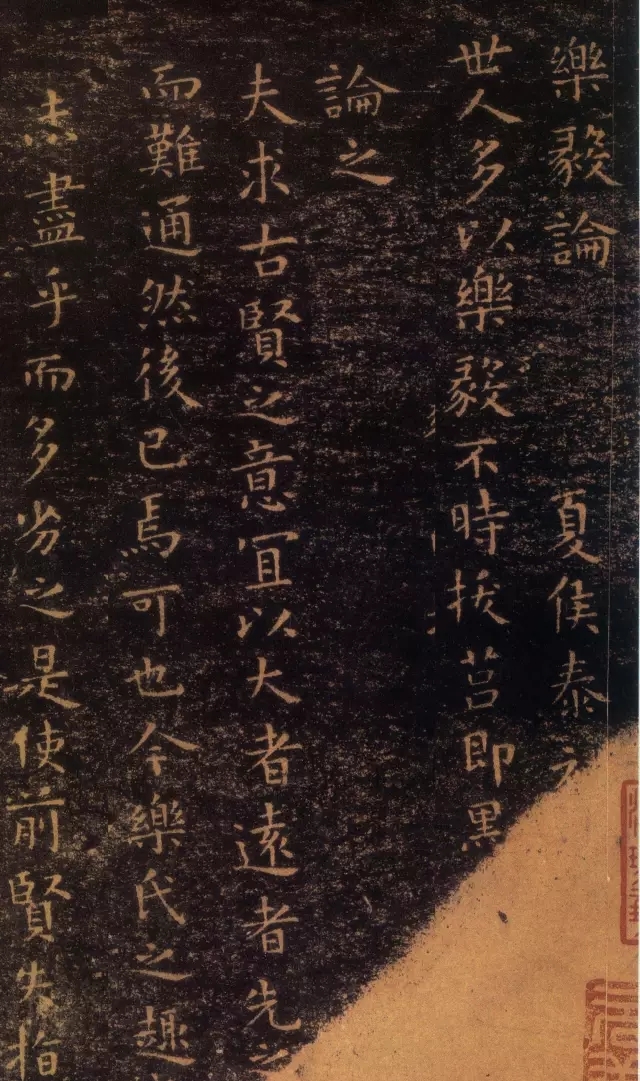 樂毅論 夏侯泰
世人多以樂毅不時拔莒即墨
論之
夫求古賢之意冝以大者遠者先之
而難通然後已焉可也今樂氏之趣
未盡乎而多劣之是使前賢失指